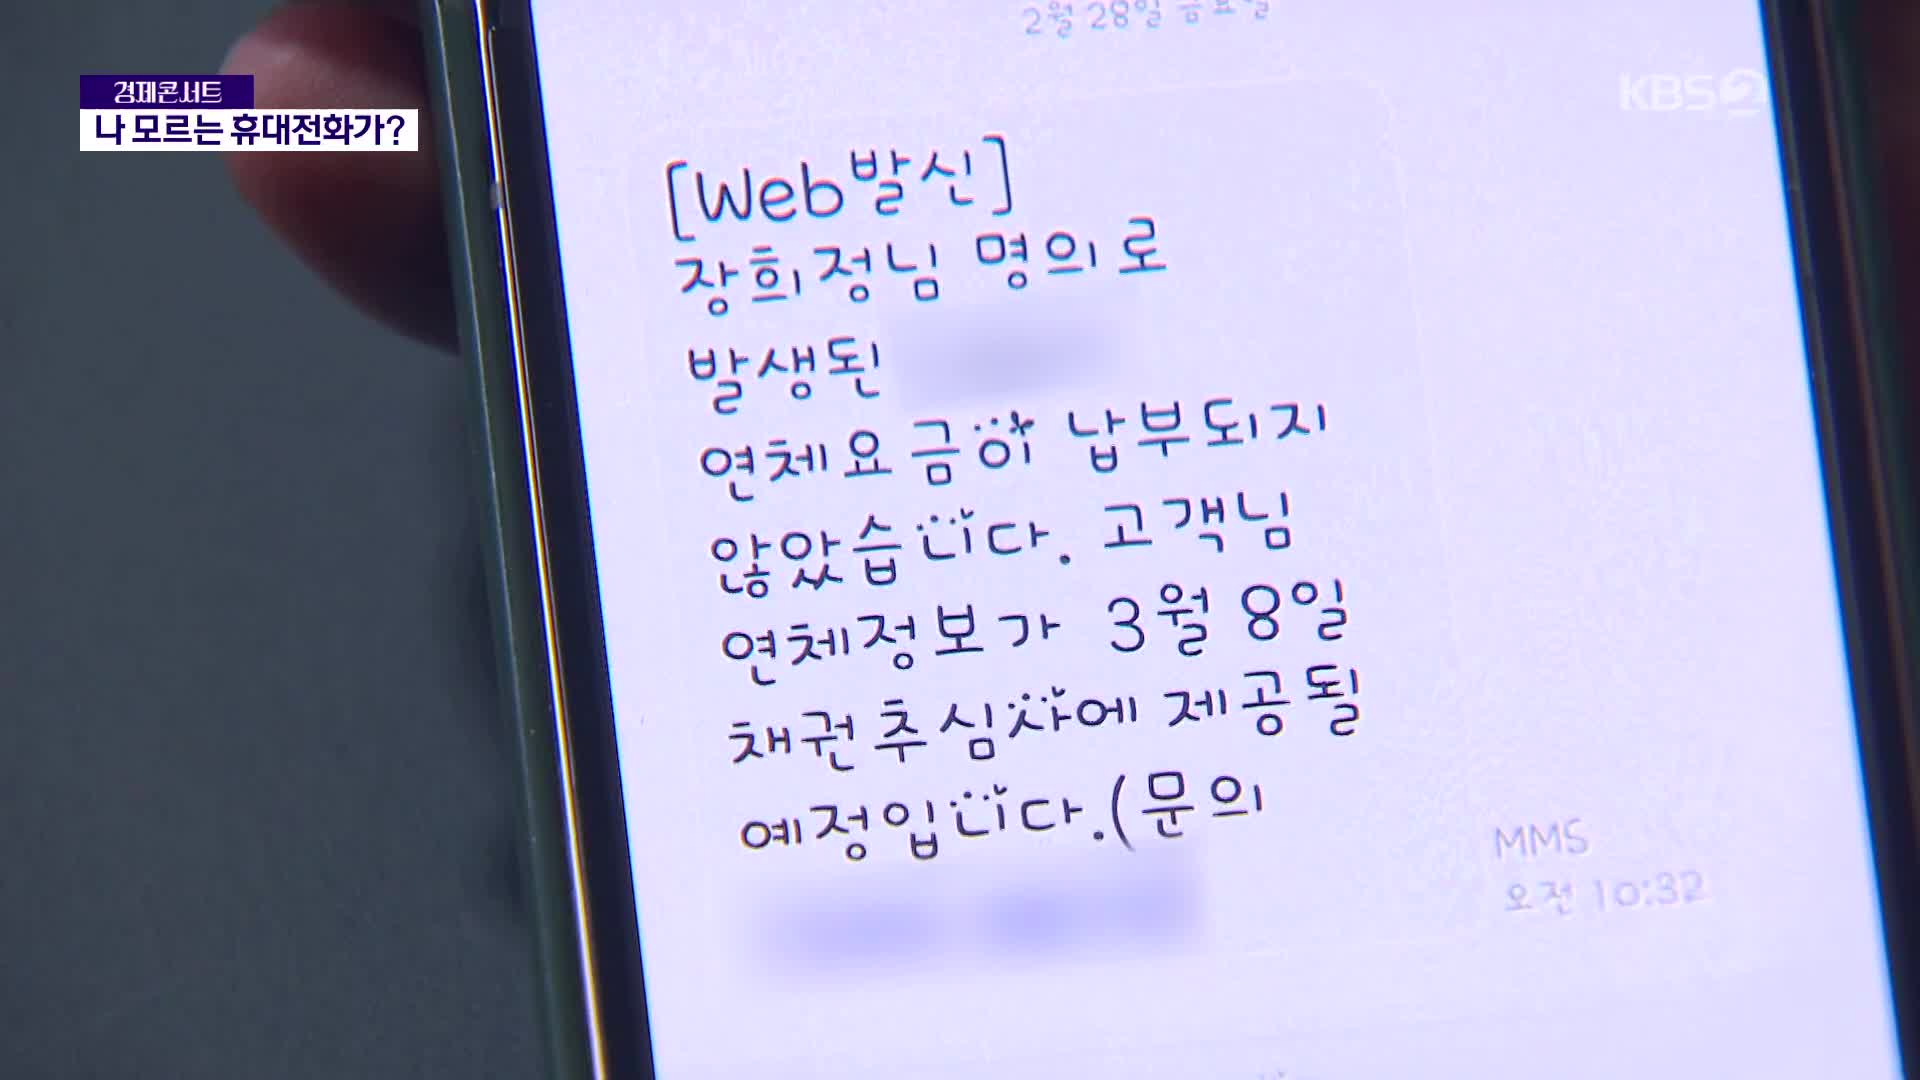 경제콘서트
나 모르는 휴대전화가?
KBS2
2월 28일 금요일
[Web발신]
장희정님 명의로
발생된
연체요금이 납부되지
않았습니다. 고객님
연체정보가 3월 8일
채권추심사에 제공될
예정입니다.(문의
MMS
오전 10:32